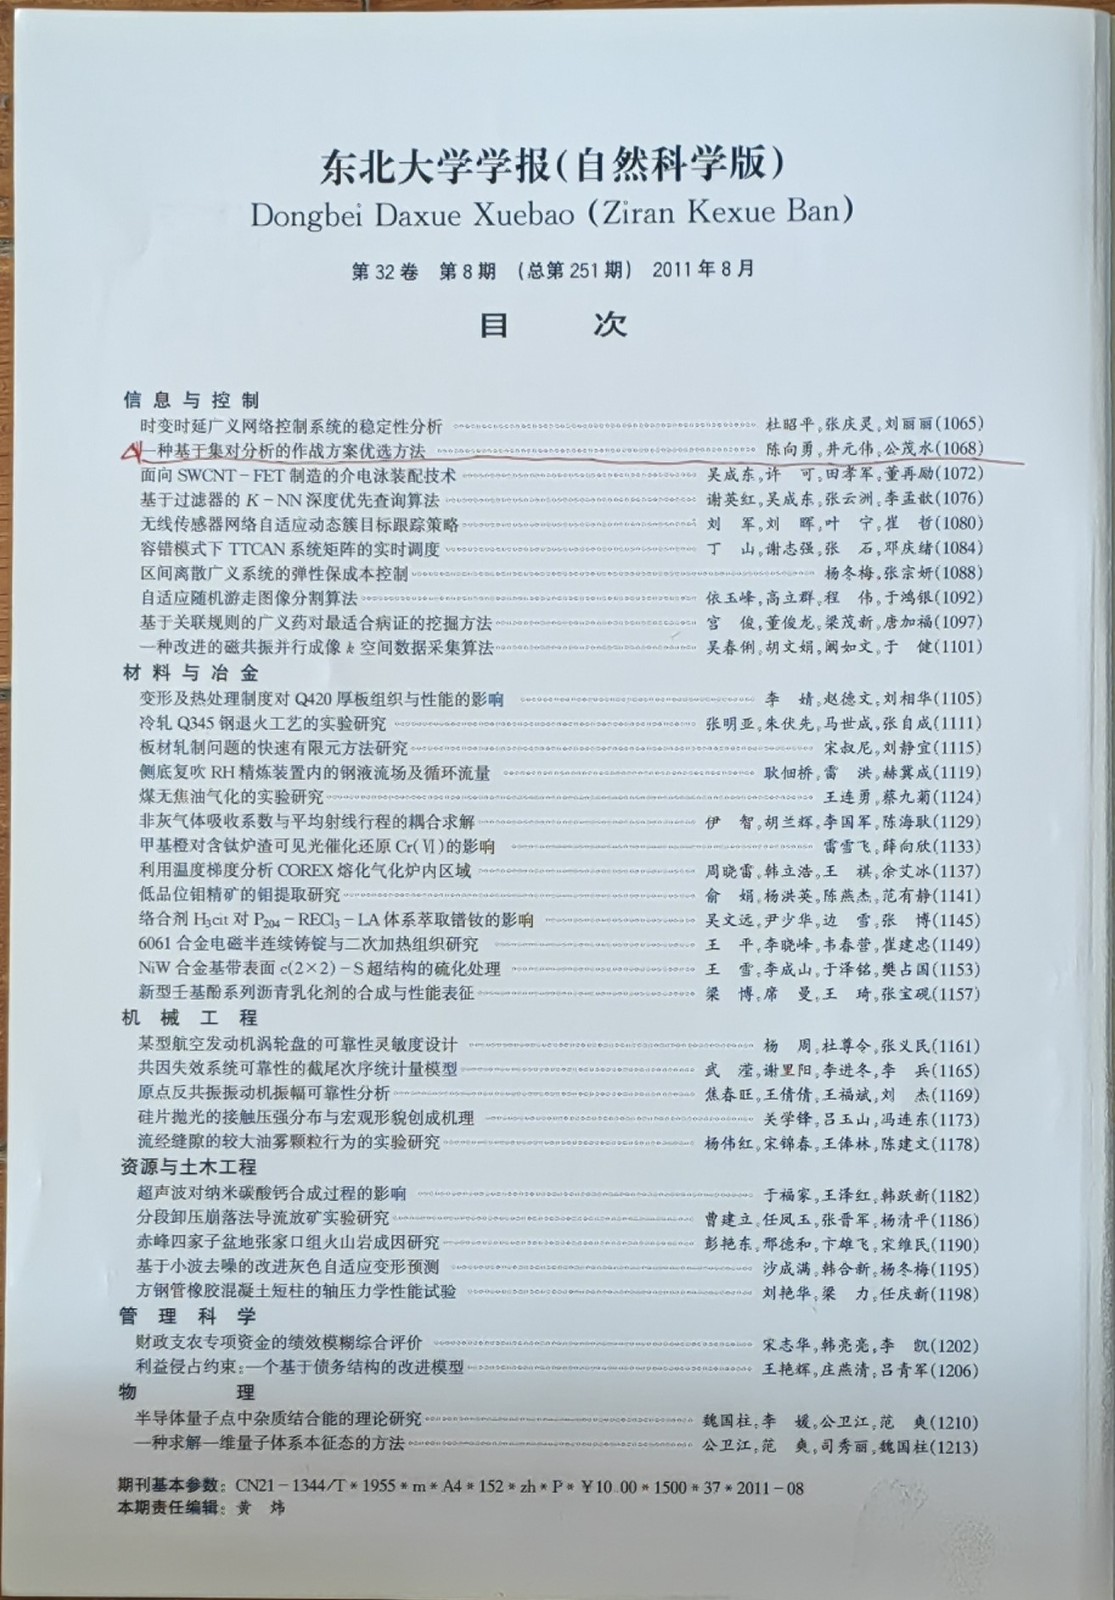 东北大学学报(自然科学版)
Dongbei Daxue Xuebao (Ziran Kexue Ban)
第32卷 第8期 (总第251期) 2011年8月
目 次
信息与控制
时变时延广义网络控制系统的稳定性分析 杜昭平,张庆灵,刘丽丽(1065)
一种基于集对分析的作战方案优选方法 陈向勇,井元伟,公茂水(1068)
面向SWCNT-FET制造的介电泳装配技术 吴成东,许 可,田孝军,董再励(1072)
基于过滤器的K-NN深度优先查询算法 谢英红,吴成东,张云洲,李孟歆(1076)
无线传感器网络自适应动态簇目标跟踪策略 刘 军,刘 晖,叶 宁,崔 哲(1080)
容错模式下TTCAN系统矩阵的实时调度 丁 山,谢志强,张 石,邓庆绪(1084)
区间离散广义系统的弹性保成本控制 杨冬梅,张宗妍(1088)
自适应随机游走图像分割算法 依玉峰,高立群,程 伟,于鸿银(1092)
基于关联规则的广义药对最适合病证的挖掘方法 宫 俊,董俊龙,梁茂新,唐加福(1097)
一种改进的磁共振并行成像k空间数据采集算法 吴春俐,胡文娟,阚如文,于 健(1101)
材料与冶金
变形及热处理制度对Q420厚板组织与性能的影响 李 婧,赵德文,刘相华(1105)
冷轧Q345钢退火工艺的实验研究 张明亚,朱伏先,马世成,张自成(1111)
板材轧制问题的快速有限元方法研究 宋叔尼,刘静宜(1115)
侧底复吹RH精炼装置内的钢液流场及循环流量 耿佃桥,雷 洪,赫冀成(1119)
煤无焦油气化的实验研究 王连勇,蔡九菊(1124)
非灰气体吸收系数与平均射线行程的耦合求解 伊 智,胡兰辉,李国军,陈海耿(1129)
甲基橙对含钛炉渣可见光催化还原Cr(Ⅵ)的影响 雷雪飞,薛向欣(1133)
利用温度梯度分析COREX熔化气化炉内区域 周晓雷,韩立浩,王 祺,余艾冰(1137)
低品位钼精矿的钼提取研究 俞 娟,杨洪英,陈燕杰,范有静(1141)
络合剂H₃cit对P₂₀₄-RECl₃-LA体系萃取镨钕的影响 吴文远,尹少华,边 雪,张 博(1145)
6061合金电磁半连续铸锭与二次加热组织研究 王 平,李晓峰,韦春营,崔建忠(1149)
NiW合金基带表面c(2×2)-S超结构的硫化处理 王 雪,李成山,于泽铭,樊占国(1153)
新型壬基酚系列沥青乳化剂的合成与性能表征 梁 博,席 曼,王 琦,张宝砚(1157)
机械工程
某型航空发动机涡轮盘的可靠性灵敏度设计 杨 周,杜尊令,张义民(1161)
共因失效系统可靠性的截尾次序统计量模型 武 滢,谢里阳,李进冬,李 兵(1165)
原点反共振振动机振幅可靠性分析 焦春旺,王倩倩,王福斌,刘 杰(1169)
硅片抛光的接触压强分布与宏观形貌创成机理 关学锋,吕玉山,冯连东(1173)
流经缝隙的较大油雾颗粒行为的实验研究 杨伟红,宋锦春,王俸林,陈建文(1178)
资源与土木工程
超声波对纳米碳酸钙合成过程的影响 于福家,王泽红,韩跃新(1182)
分段卸压崩落法导流放矿实验研究 曹建立,任凤玉,张晋军,杨清平(1186)
赤峰四家子盆地张家口组火山岩成因研究 彭艳东,邢德和,卞雄飞,宋维民(1190)
基于小波去噪的改进灰色自适应变形预测 沙成满,韩合新,杨冬梅(1195)
方钢管橡胶混凝土短柱的轴压力学性能试验 刘艳华,梁 力,任庆新(1198)
管理科学
财政支农专项资金的绩效模糊综合评价 宋志华,韩亮亮,李 凯(1202)
利益侵占约束:一个基于债务结构的改进模型 王艳辉,庄燕清,吕青军(1206)
物 理
半导体量子点中杂质结合能的理论研究 魏国柱,李 媛,公卫江,范 爽(1210)
一种求解一维量子体系本征态的方法 公卫江,范 爽,司秀丽,魏国柱(1213)
期刊基本参数:CN21-1344/T*1955*m*A4*152*zh*P*¥10.00*1500*37*2011-08
本期责任编辑:黄 炜